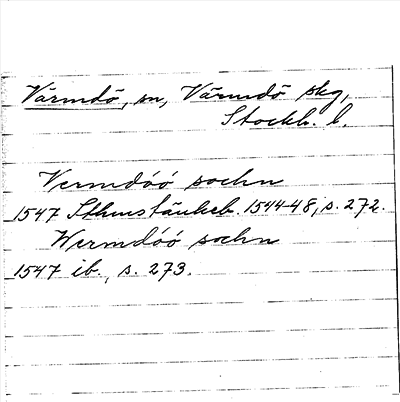 Värmdö, sn, Värmdö skg,
Stockh. l.
Vermdóó sochn
1547 Sthmstänkeb. 1544-48, s. 272.
Wermdóó sochn
1547 ib., s. 273.